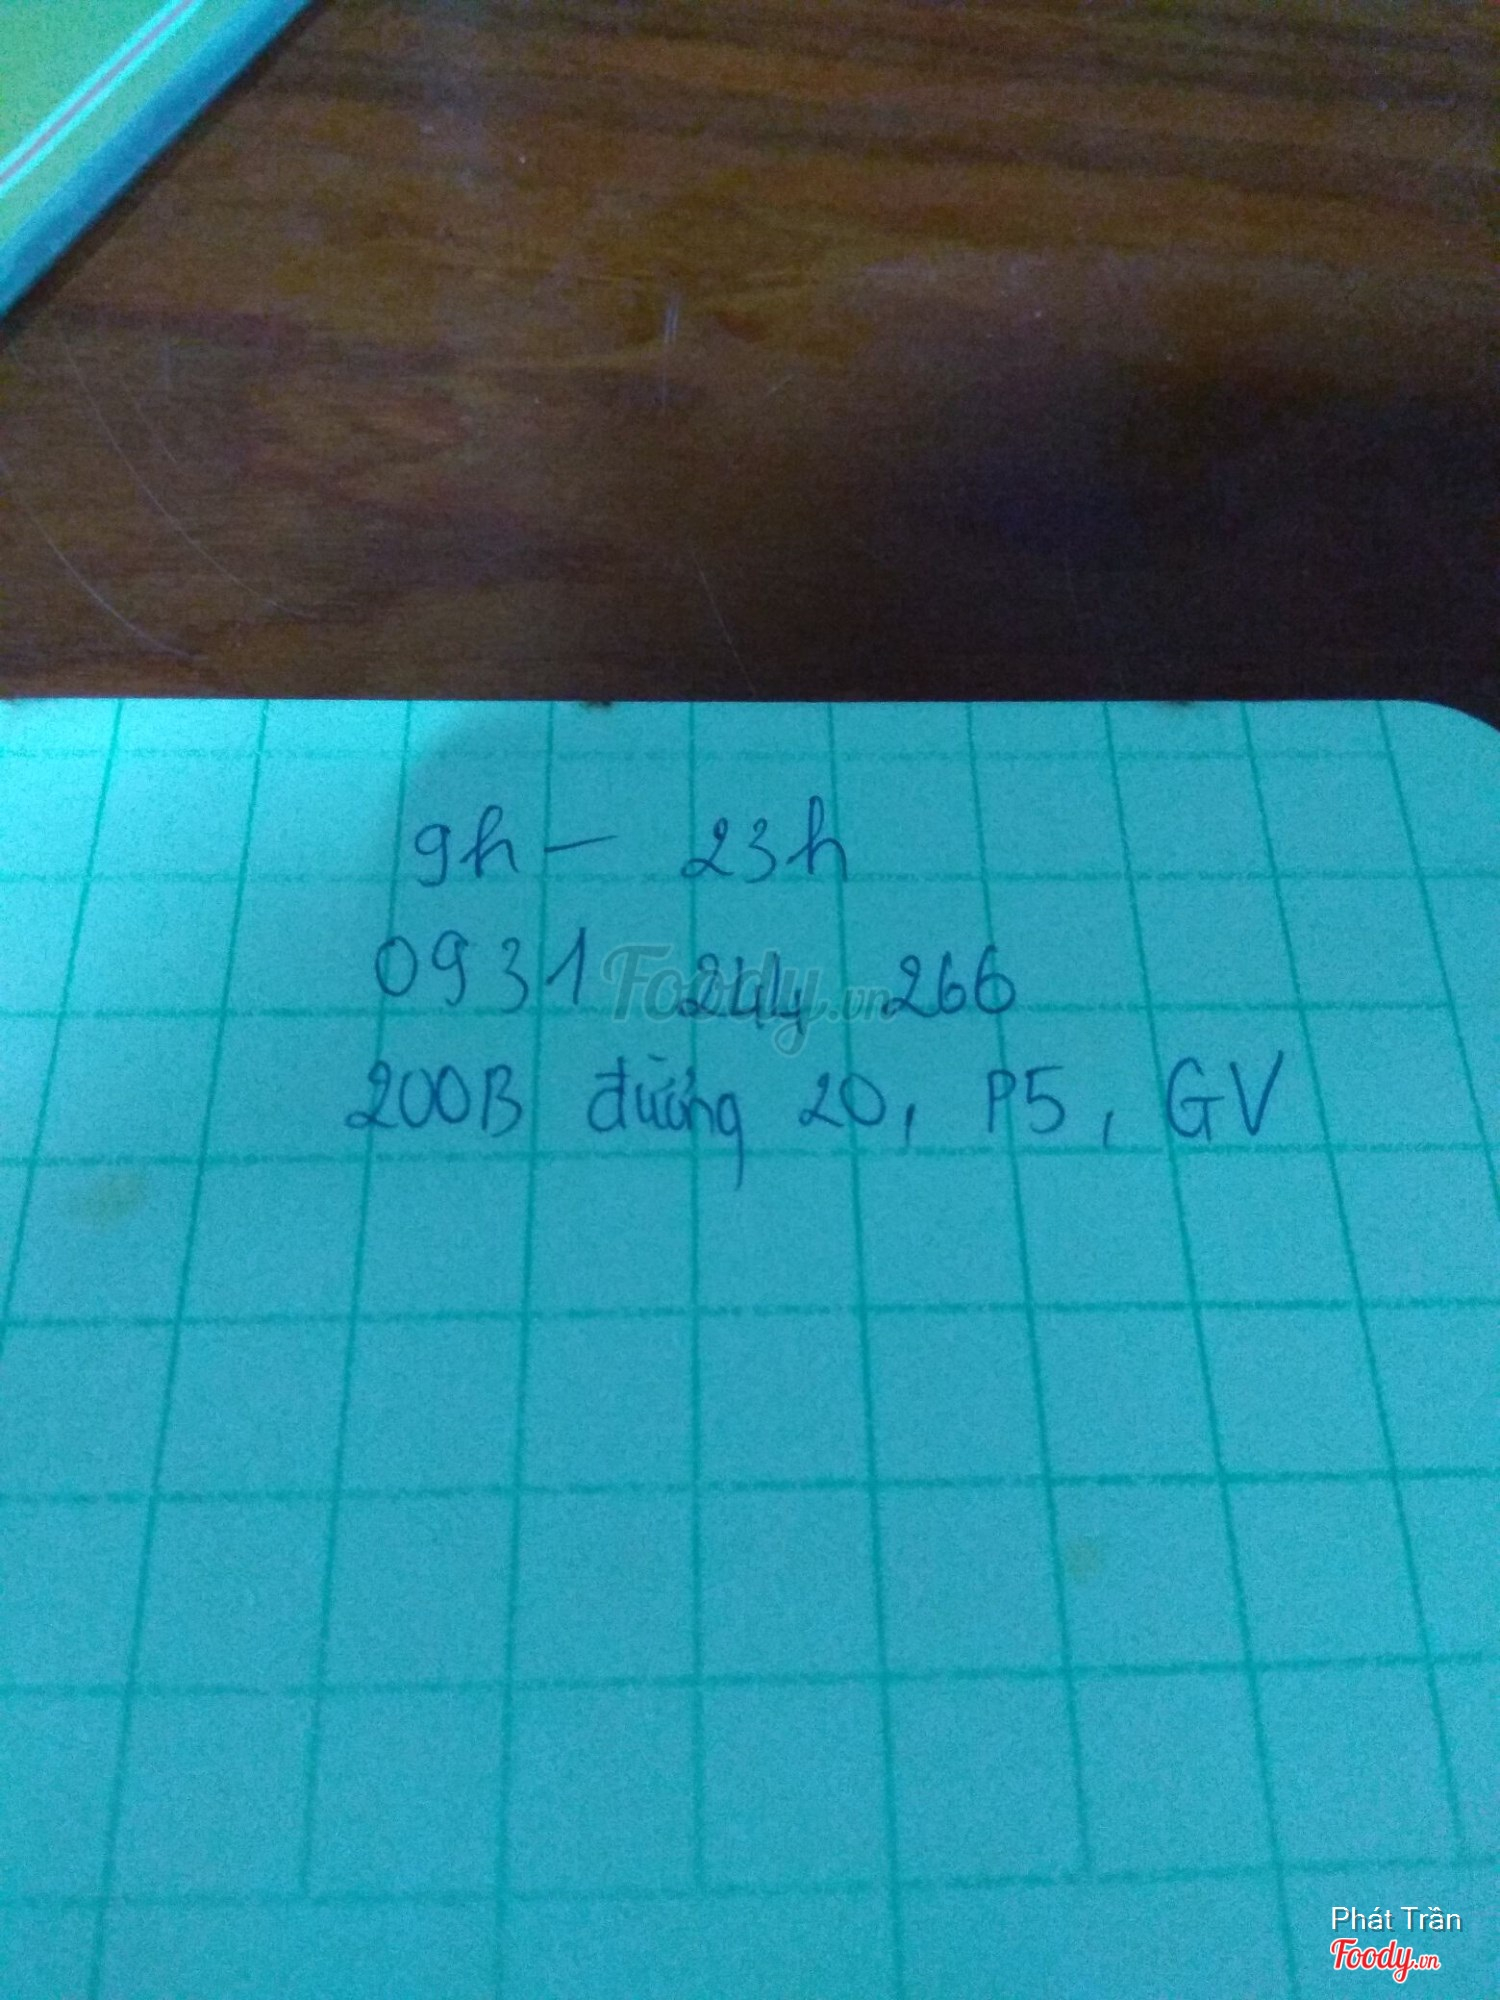 9h - 23h
0931 244 266
200B đường 20, P5, GV
Foody.vn
Phát Trần
Foody.vn